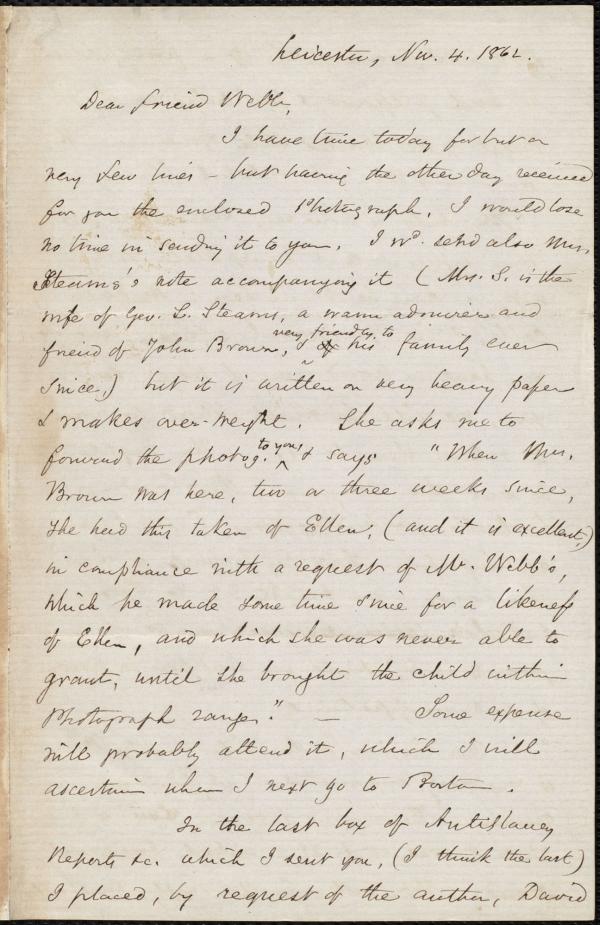 Leicester, Nov. 4. 1862.
Dear friend Webb,
I have time today for but a
very few lines – but having the other day received
for you the enclosed Photograph, I would lose
no time in sending it to you. I wd. send also Mrs.
Stearns's note accompanying it (Mrs. S. is the
wife of Geo. L. Stearns, a warm admirer and
very friendly to
friend of John Brown, & his family ever
since,) but it is written on very heavy paper
& makes over-weight. She asks me to
forward the photog. to you, & says "When Mrs.
Brown was here, two or three weeks since,
she had this taken of Ellen, (and it is excellent,)
in compliance with a request of Mr. Webb's,
which he made some time since for a likeness
of Ellen, and which she was never able to
grant, until she brought the child within
Photograph range." — Some expense
will probably attend it, which I will
ascertain when I next go to Boston.
In the last box of Antislavery
Reports &c. which I sent you, (I think the last)
I placed, by request of the author, David